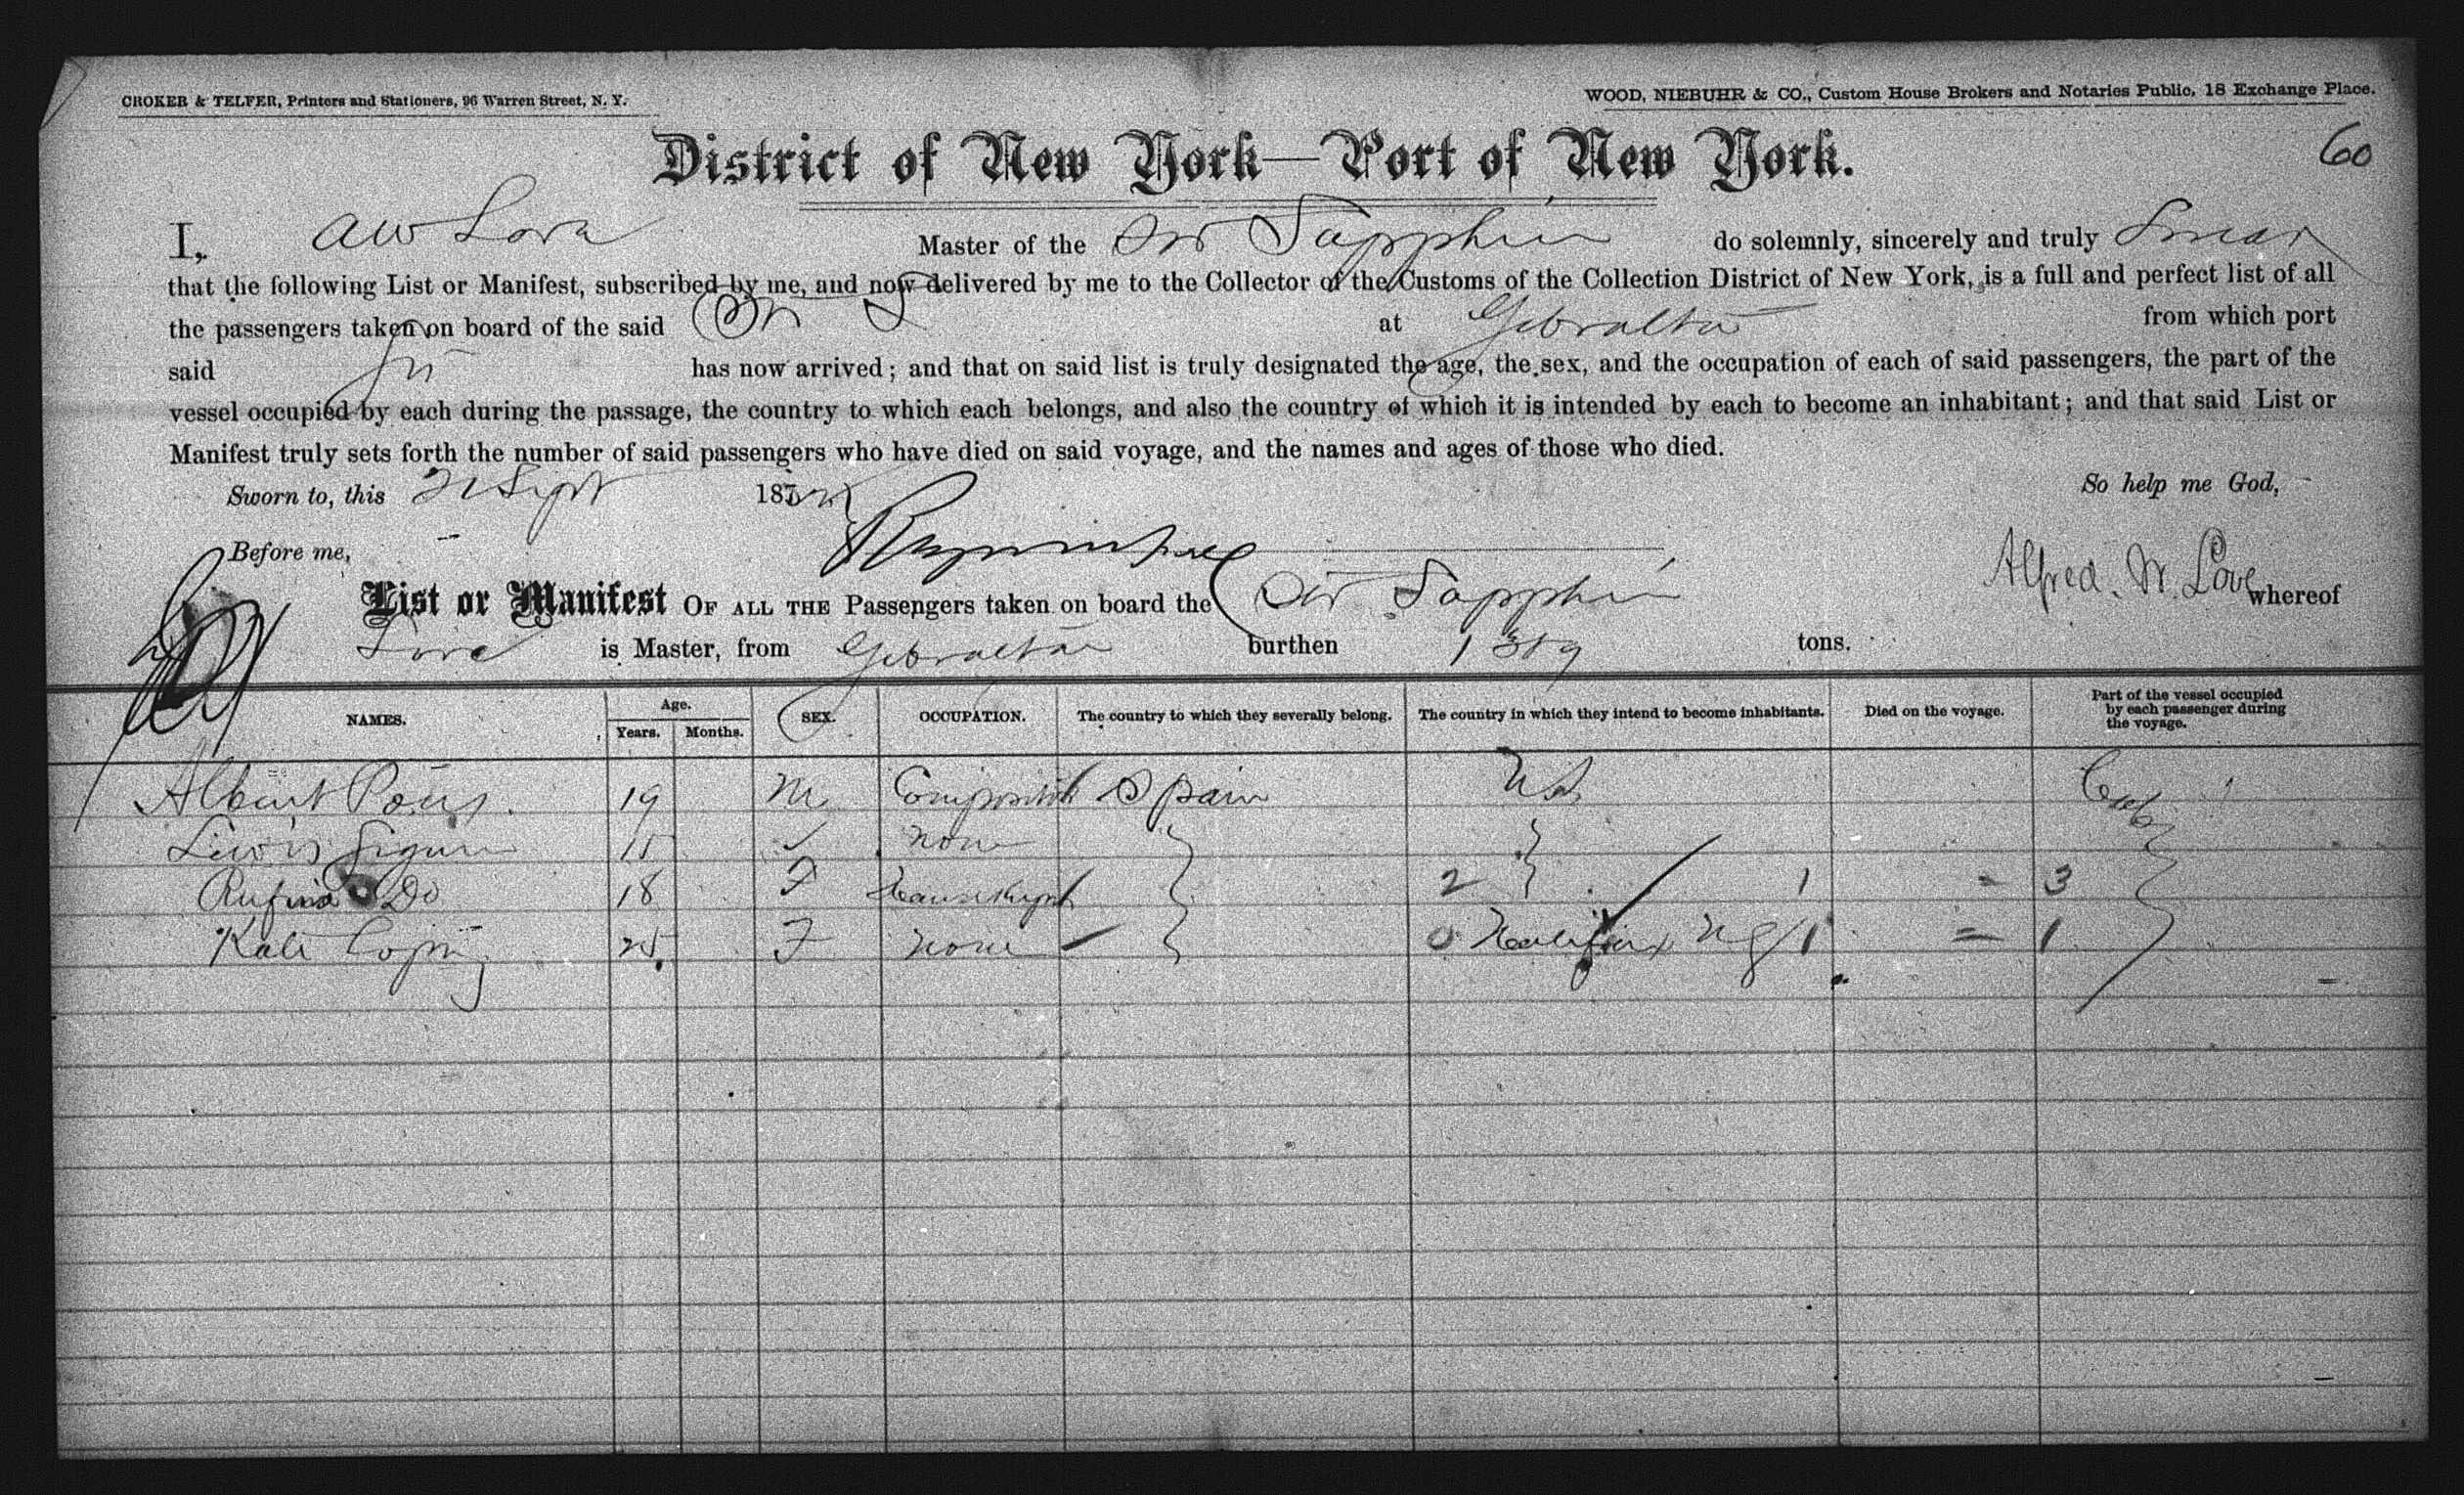 CROKER & TELFER, Printers and Stationers, 96 Warren Street, N. Y.
WOOD, NIEBUHR & CO., Custom House Brokers and Notaries Public, 18 Exchange Place.
District of New York—Port of New York.
60
I, AW Love Master of the Sapphire do solemnly, sincerely and truly Swear
that the following List or Manifest, subscribed by me, and now delivered by me to the Collector of the Customs of the Collection District of New York, is a full and perfect list of all
the passengers taken on board of the said at Gibraltar from which port
said has now arrived; and that on said list is truly designated the age, the sex, and the occupation of each of said passengers, the part of the
vessel occupied by each during the passage, the country to which each belongs, and also the country of which it is intended by each to become an inhabitant; and that said List or
Manifest truly sets forth the number of said passengers who have died on said voyage, and the names and ages of those who died.
Sworn to, this Sept 18 So help me God,
Before me,
Alfred. W. Love
List or Manifest OF ALL THE Passengers taken on board the Sapphire whereof
Love is Master, from Gibraltar burthen 1319 tons.
NAMES. Age. Years. Months. SEX. OCCUPATION. The country to which they severally belong. The country in which they intend to become inhabitants. Died on the voyage. Part of the vessel occupied by each passenger during the voyage.
Albert 19 M Compositor Spain US
Lewis 15 none
Rufina Do 18 F 2 1 = 3
Kate 25 F none 0 1 = 1